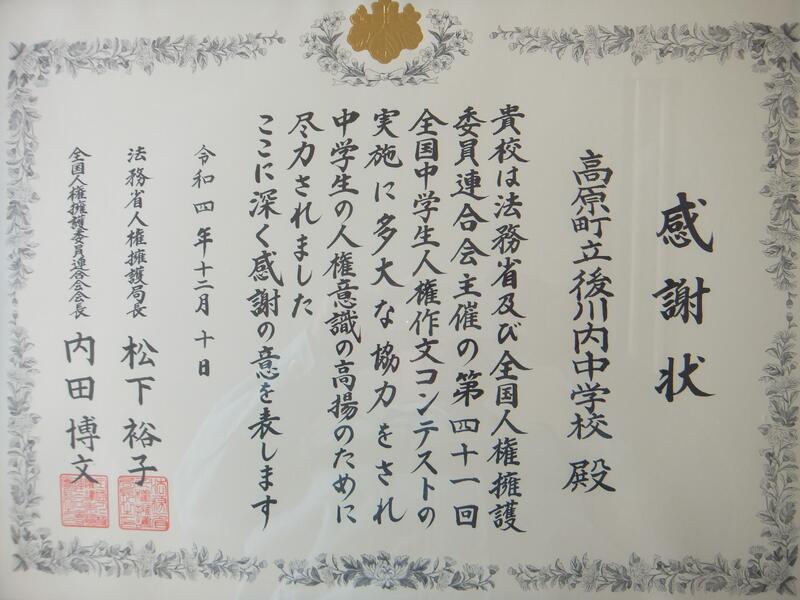 感謝状
高原町立後川内中学校 殿
貴校は法務省及び全国人権擁護
委員連合会主催の第四十一回
全国中学生人権作文コンテストの
実施に多大な協力をされ
中学生の人権意識の高揚のために
尽力されました
ここに深く感謝の意を表します
令和四年十二月十日
法務省人権擁護局長 松下裕子
全国人権擁護委員連合会会長 内田博文